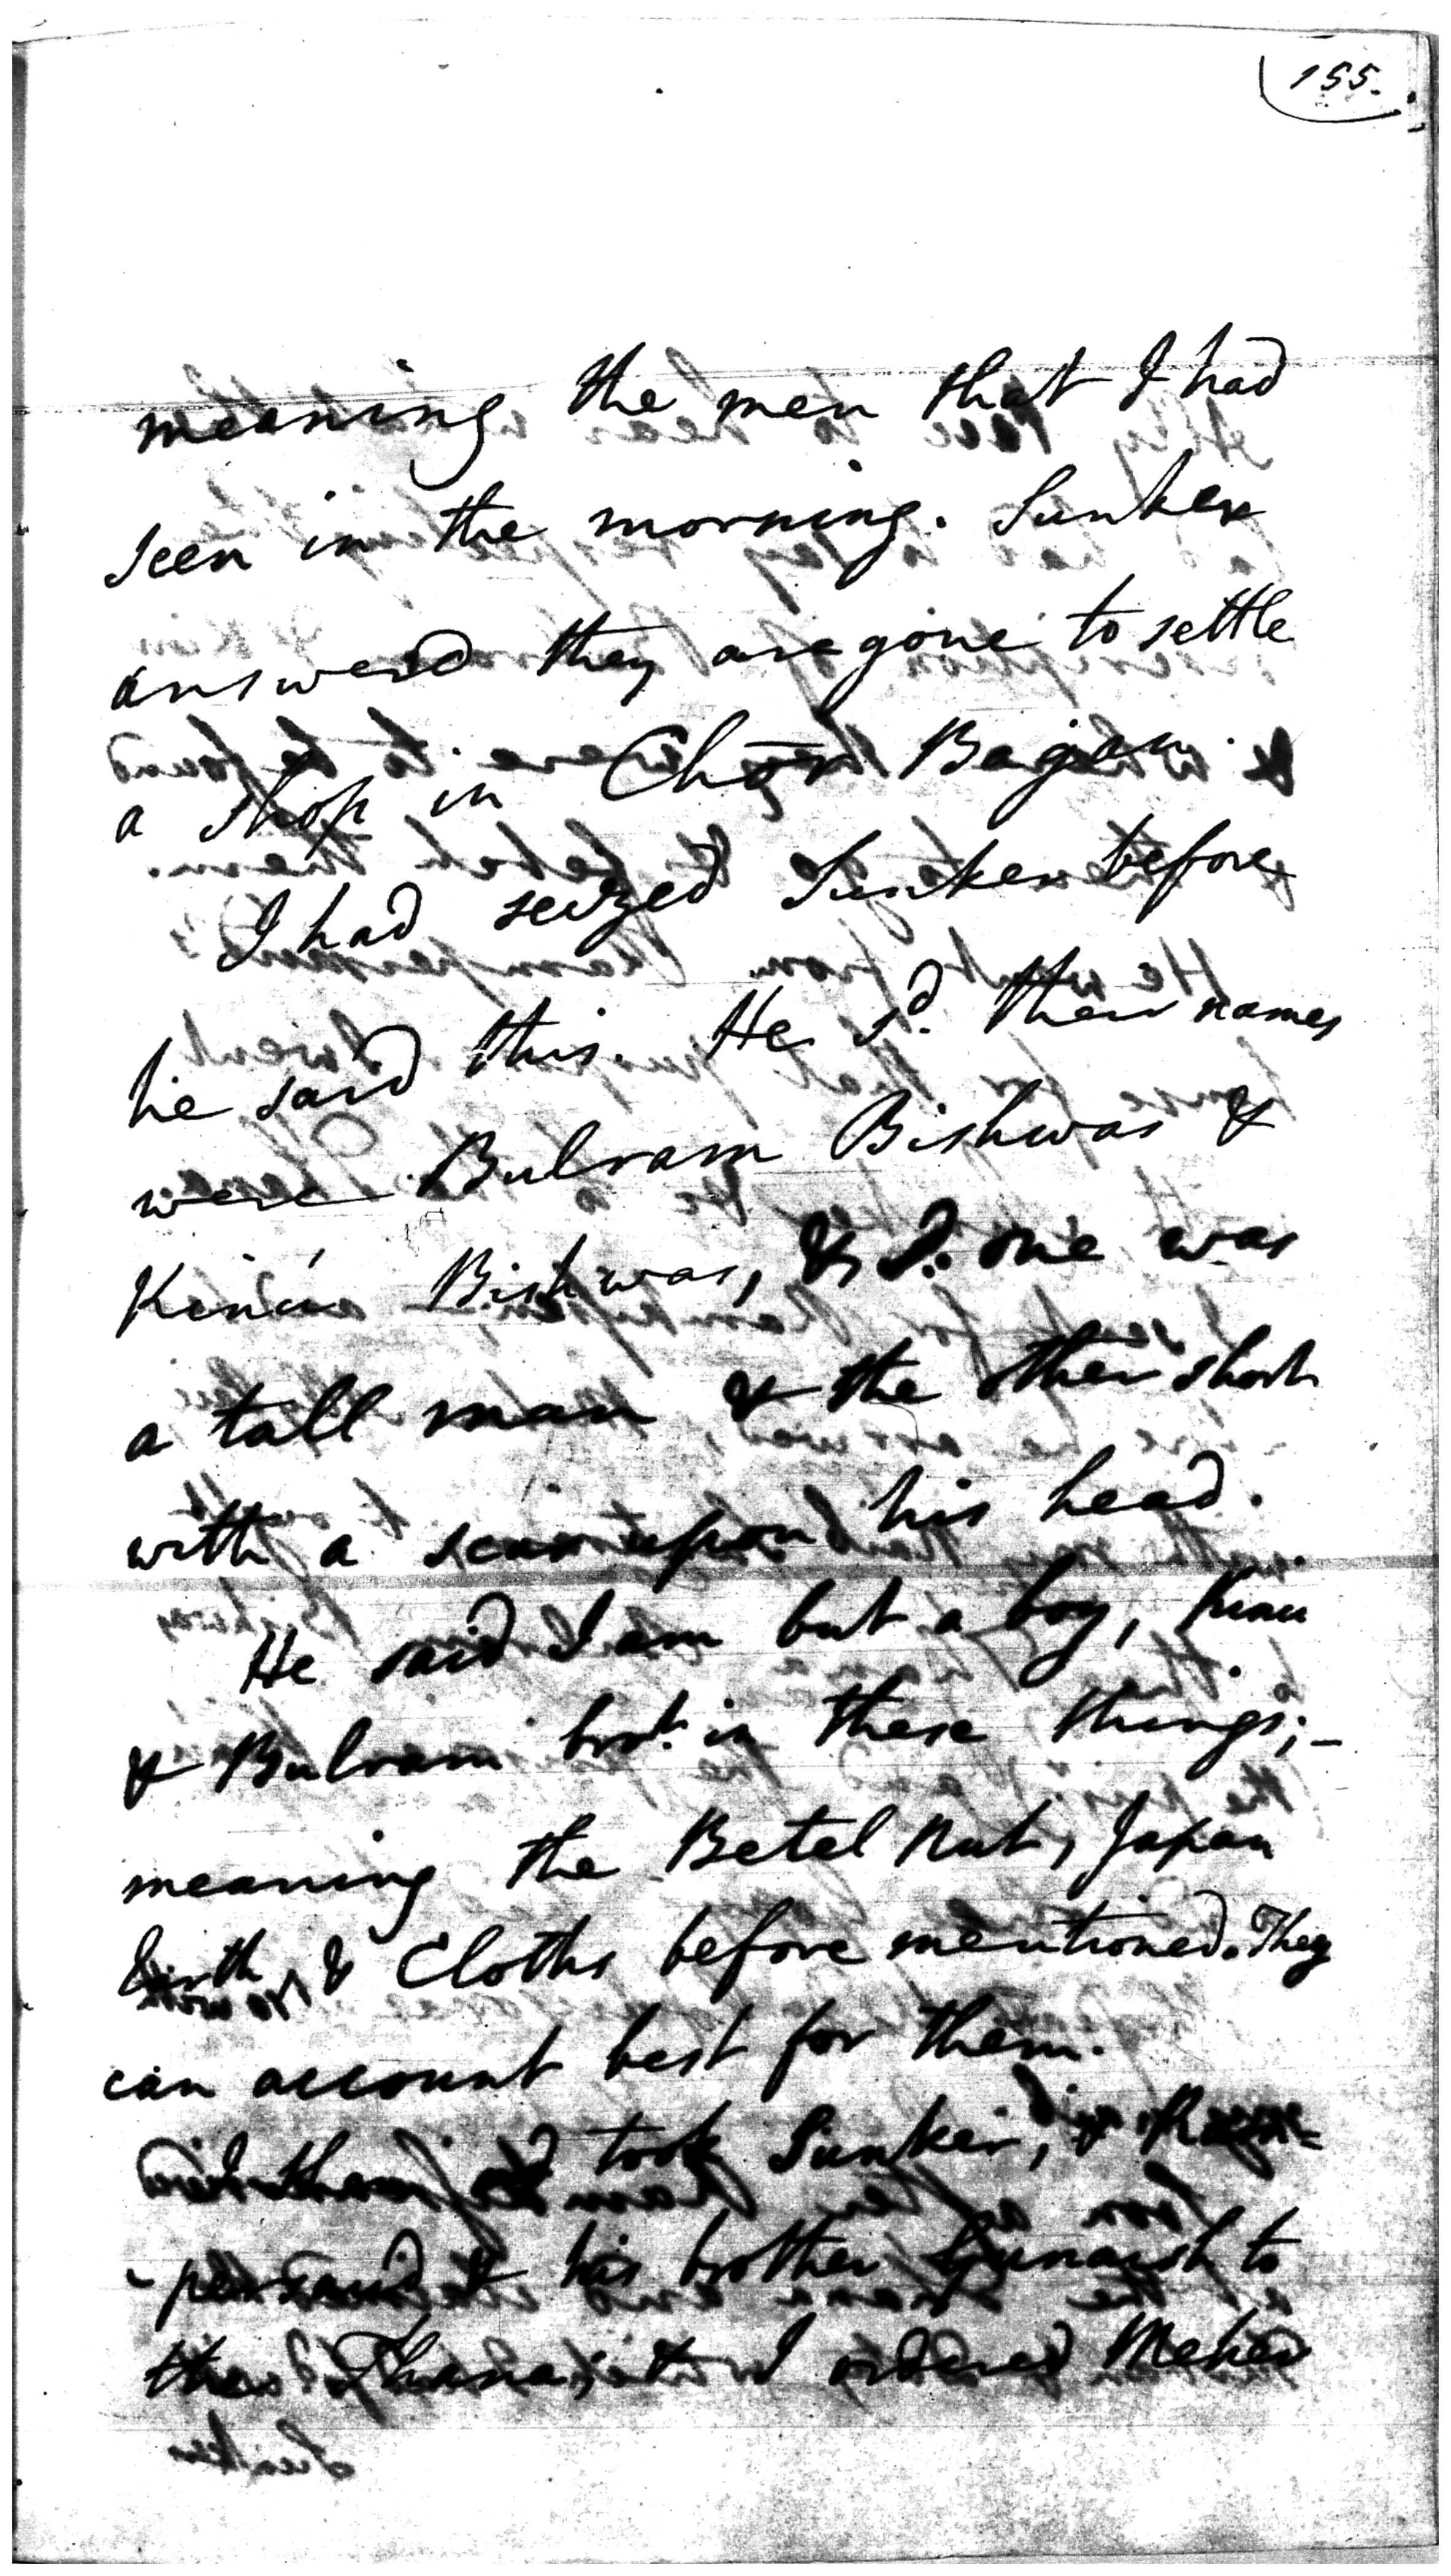 155.
meaning the men that I had
seen in the morning. Sunker
answered they are gone to settle
a shop in Chōr Bagan.
I had seized Sunker before
he said this. He sd. their names
were Bulram Bishwas &
Kinú Bishwas, & one was
a tall man & the other short
with a scar upon his head.
He said I am but a boy, Kinu
& Bulram brot. in these things;—
meaning the Betel Nut, Japan
Earth, & Cloths before mentioned. They
can account best for them.
I then took Sunker, & Ram-
-persaud & his brother Gunaish to
the Thana; & I ordered Meher